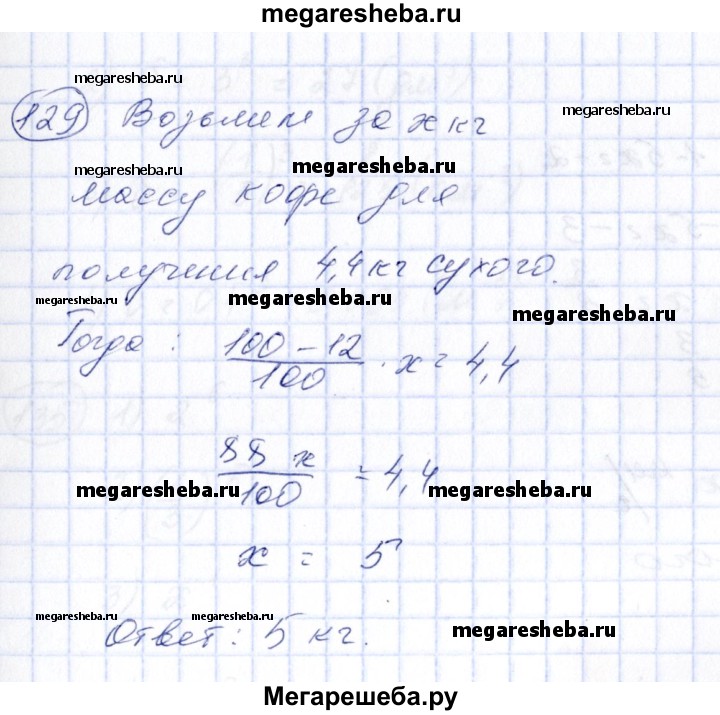 megaresheba.ru
megaresheba.ru
129 Возьмем за x кг
megaresheba.ru
megaresheba.ru
megaresheba.ru
массу кофе для
получения 4,4 кг сухого.
megaresheba.ru
megaresheba.ru
megaresheba.ru
Тогда : (100 – 12)/100 · x = 4,4
88 x/100 = 4,4
megaresheba.ru
megaresheba.ru
x = 5
megaresheba.ru
megaresheba.ru
megaresheba.ru
Ответ: 5 кг.
Мегарешеба.ру